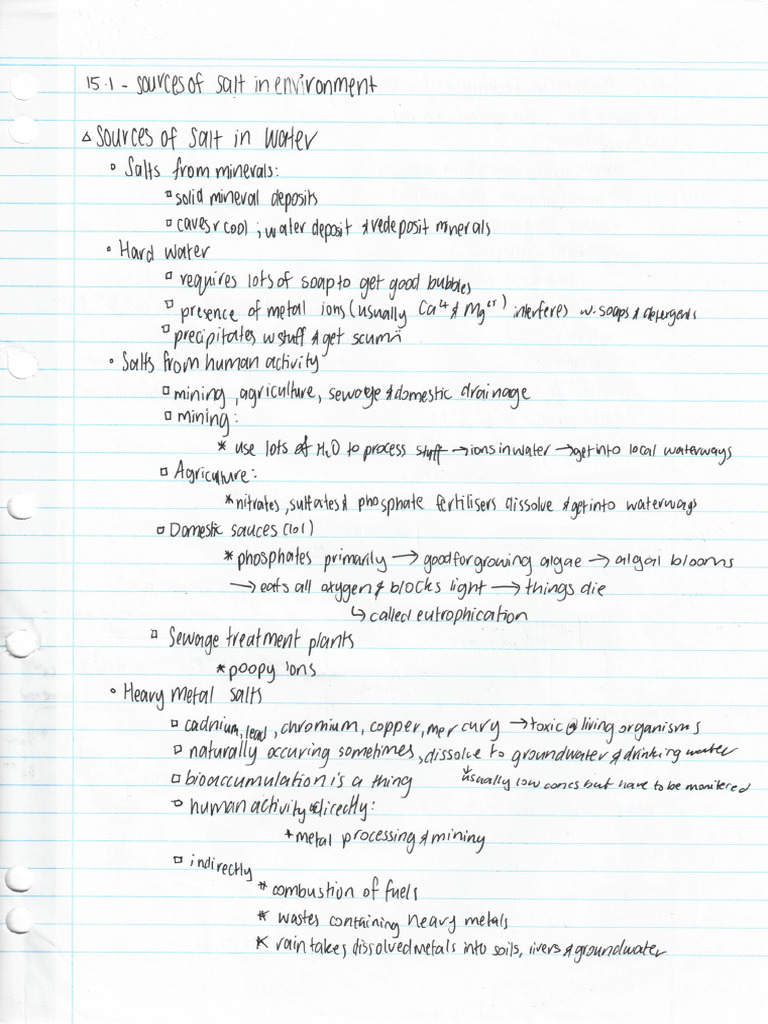 15.1 - sources of salt in environment
△ Sources of Salt in Water
◦ Salts from minerals:
▫ solid mineral deposits
▫ caves r cool ; water deposit & redeposit minerals
◦ Hard water
▫ requires lots of soap to get good bubbles
▫ presence of metal ions (usually Ca²⁺ & Mg²⁺) interferes w. soaps & detergents
▫ precipitates w stuff & get scum
◦ Salts from human activity
▫ mining, agriculture, sewage & domestic drainage
▫ mining:
* use lots of H₂O to process stuff → ions in water → get into local waterways
▫ Agriculture:
* nitrates, sulfates & phosphate fertilisers dissolve & get into waterways
▫ Domestic sauces (lol)
* phosphates primarily → good for growing algae → algal blooms
→ eats all oxygen & blocks light → things die
↳ called eutrophication
▫ Sewage treatment plants
* poopy ions
◦ Heavy metal salts
▫ cadnium, lead, chromium, copper, mercury → toxic @ living organisms
▫ naturally occuring sometimes, dissolve to groundwater & drinking water
↓ usually low concs but have to be monitered
▫ bioaccumulation is a thing
▫ human activity directly:
* metal processing & mining
▫ indirectly
* combustion of fuels
* wastes containing heavy metals
* rain takes dissolved metals into soils, rivers & groundwater